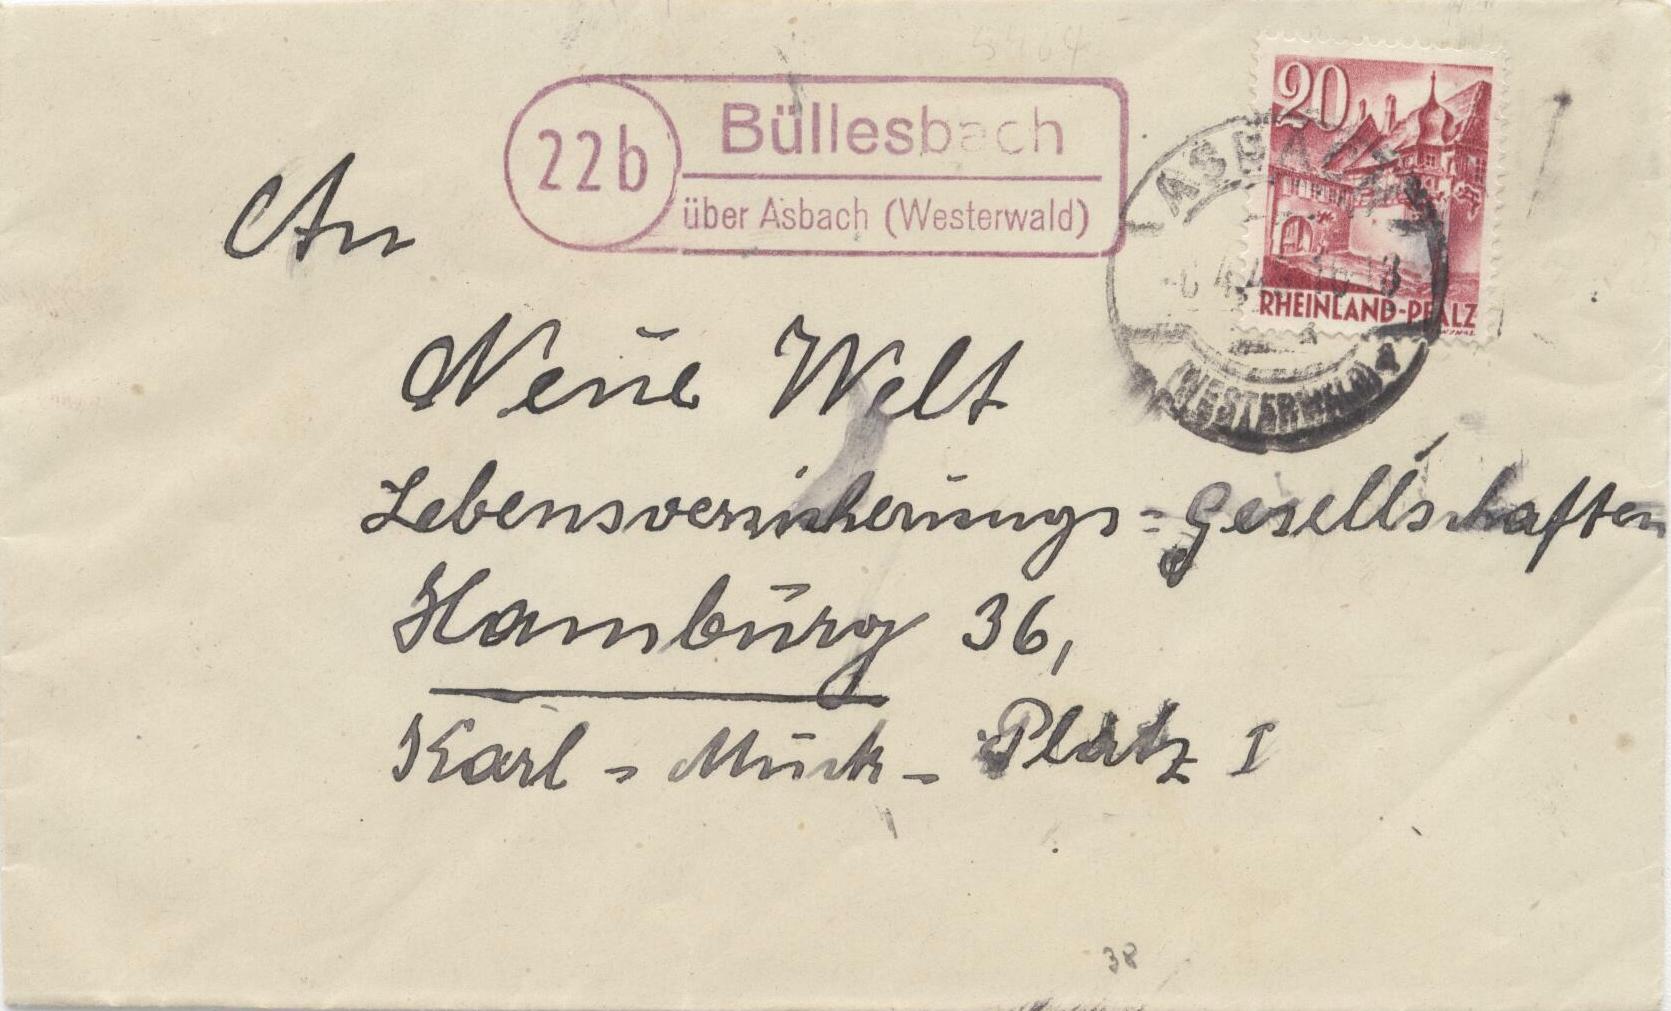 5464
22b
Büllesbach
über Asbach (Westerwald)
20
RHEINLAND-PFALZ
ASBACH
16-18
(WESTERWALD)
An
Neue Welt
Lebensversicherungs=Gesellschaften
Hamburg 36,
Karl-Muck-Platz I
38